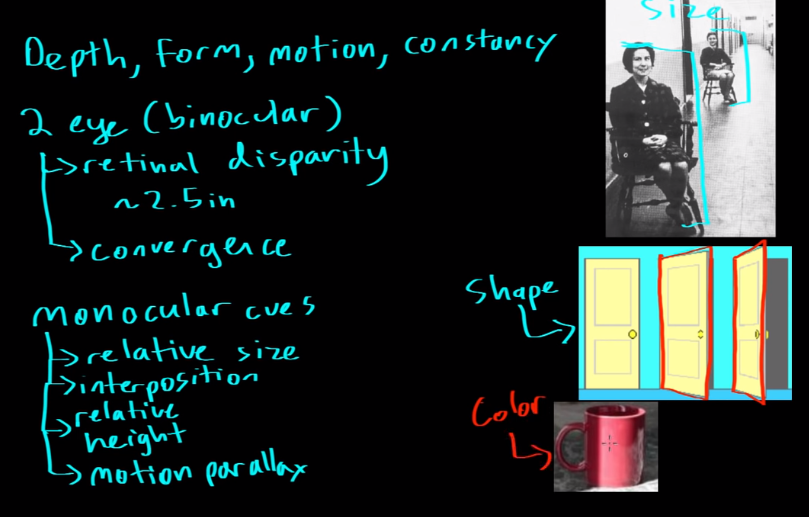 Depth, Form, motion, constancy
2 eye (binocular)
retinal disparity
~2.5in
convergence
monocular cues
relative size
interposition
relative
height
motion parallax
Size
Shape
Color